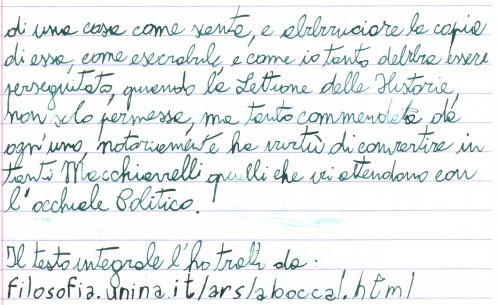 di una cosa come santa, e abbruciare la copia
di essa, come esecrabile, e come io tanto debba essere
perseguitato, quando la Lettione delle Historie,
non solo permessa, ma tanto commendata da
ogn'uno, notoriamente ha virtù di convertire in
tanti Macchiavelli quelli che vi attendono con
l'occhiale Politico.
Il testo integrale l'ho tratto da:
filosofia.unina.it/ars/abocca1.html